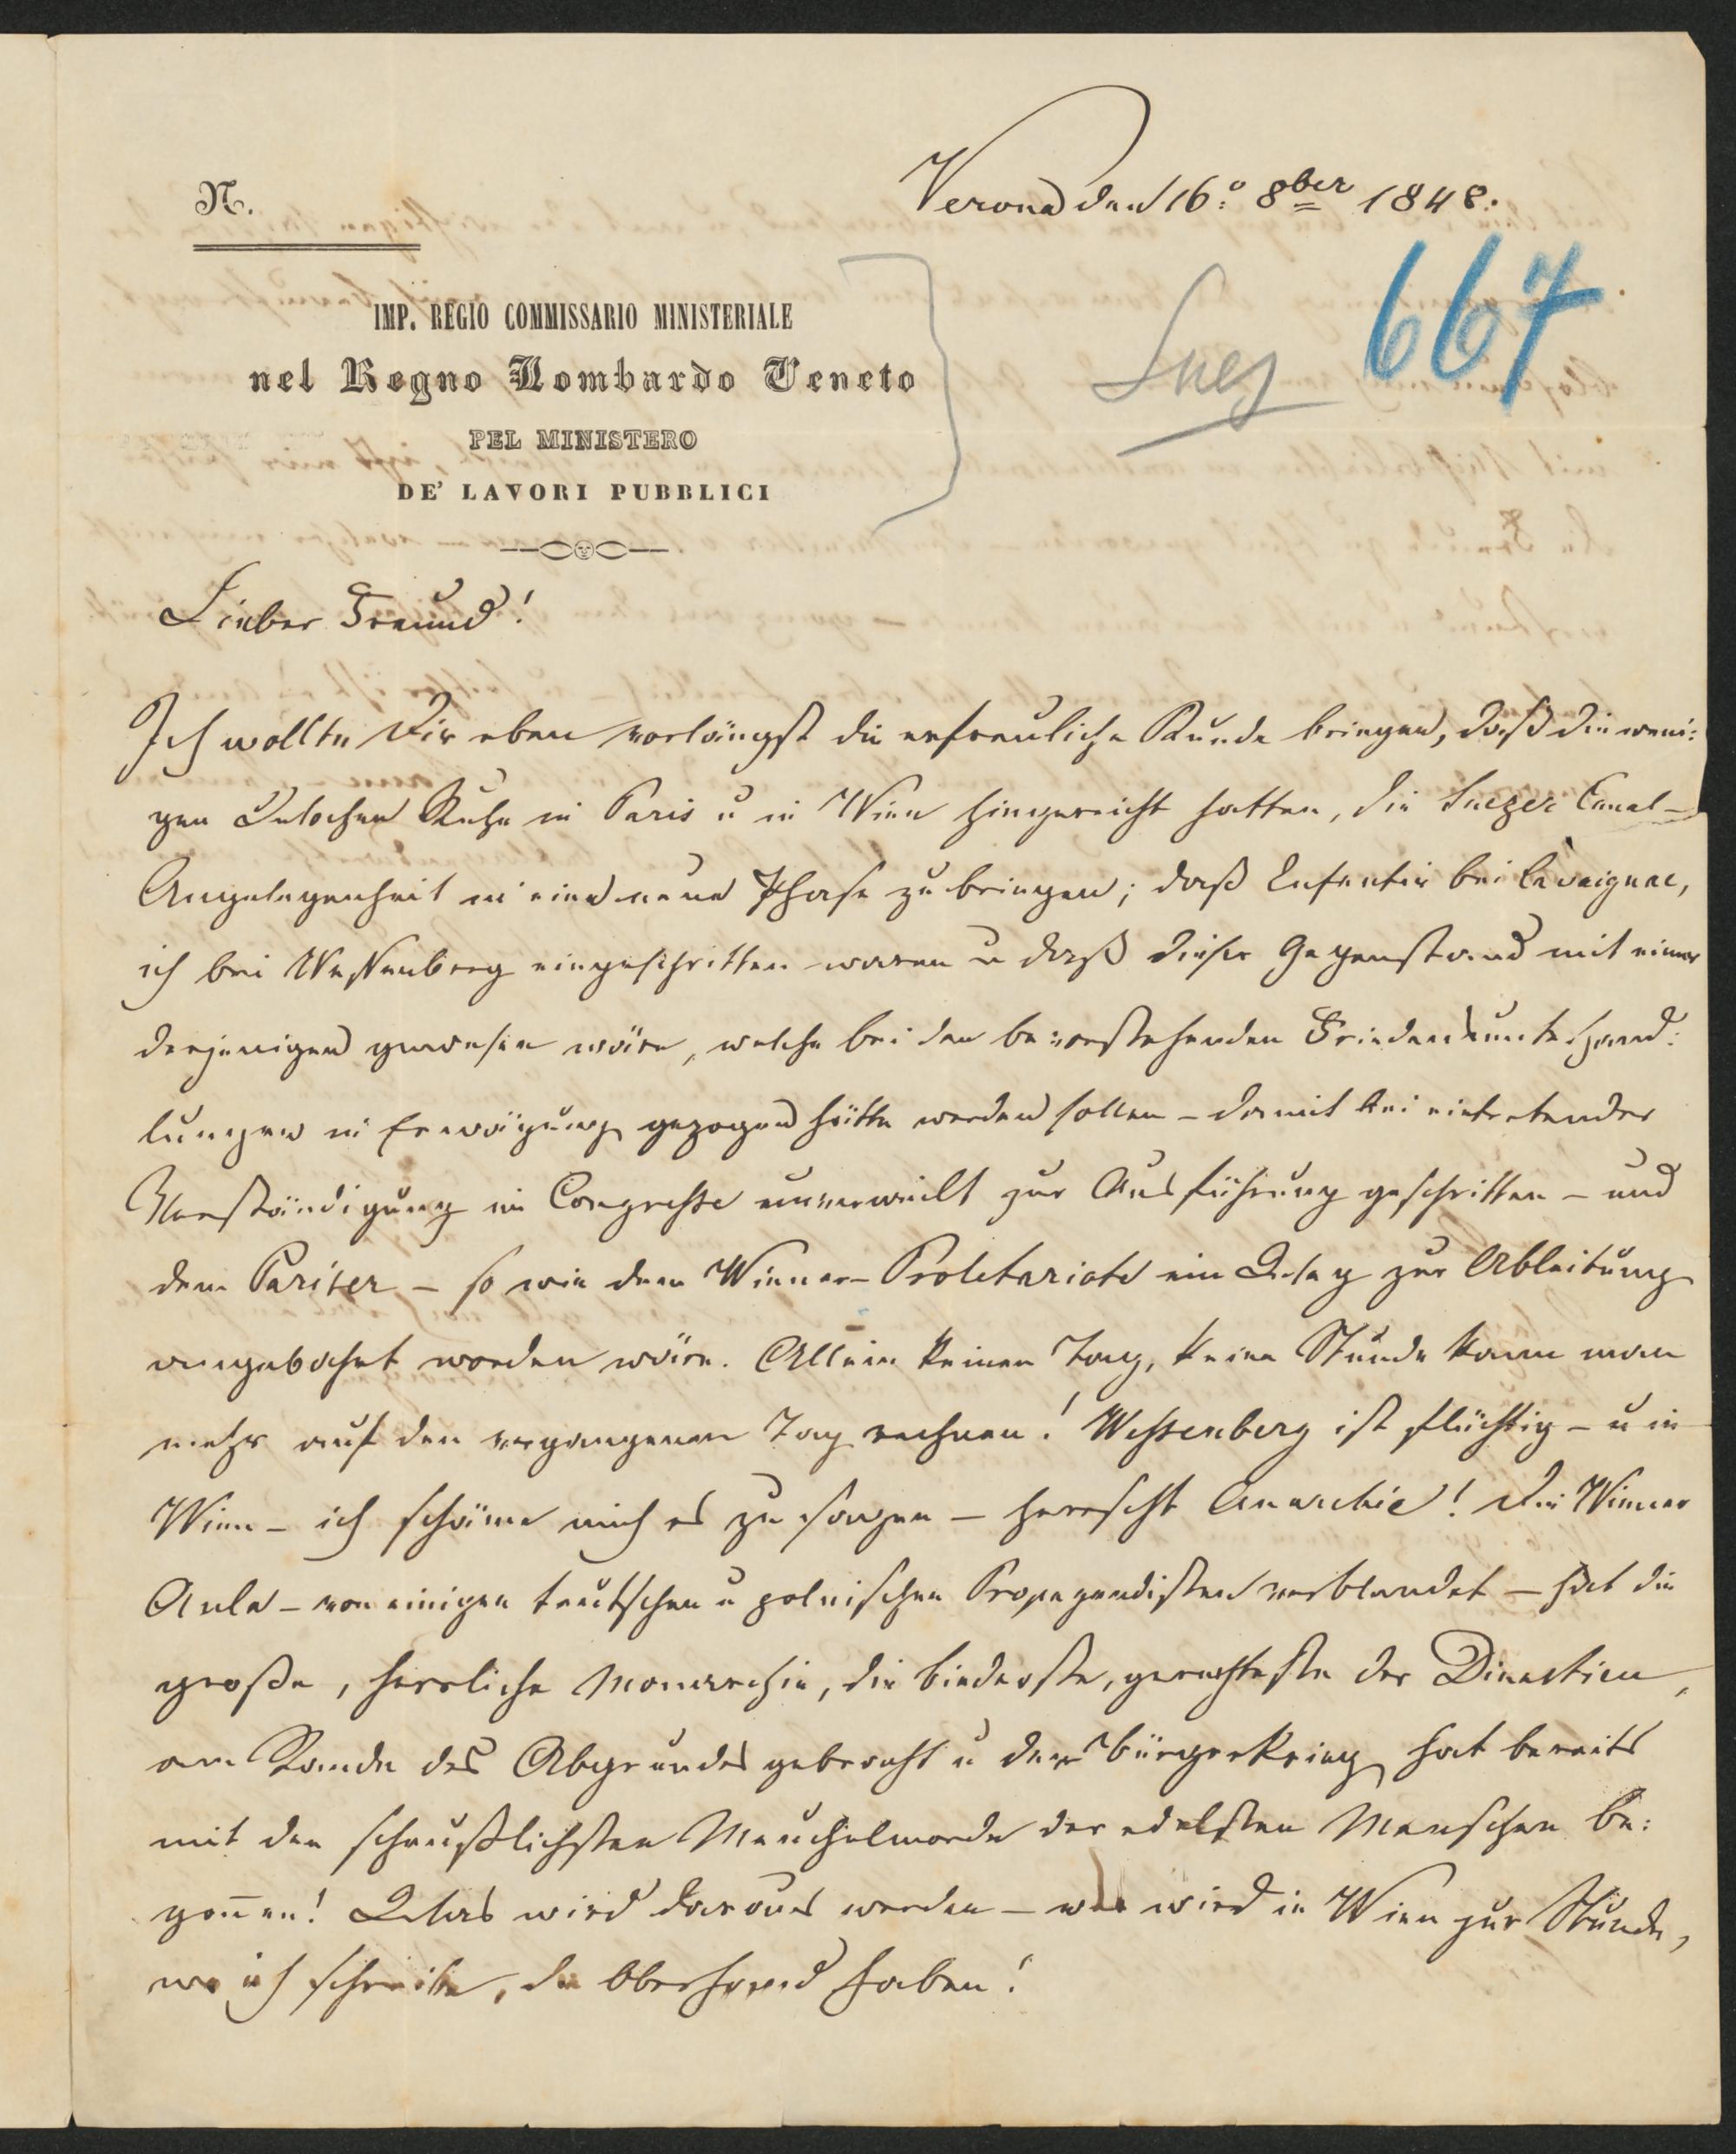 N.
Verona den 16: 8ber 1848.
667
Suez
IMP. REGIO COMMISSARIO MINISTERIALE
nel Regno Lombardo Veneto
PEL MINISTERO
DE' LAVORI PUBBLICI
Lieber Freund!
Ich wollte Dir eben vorlängst die erfreuliche Kunde bringen, daß die weni:
gen Wochen Ruhe in Paris u in Wien hingereicht hatten, die Suezer Canal-
Angelegenheit in eine neue Phase zu bringen; daß Enfantin bei Cavaignac,
ich bei Wessenberg eingeschritten waren u daß dieser Gegenstand mit einer
derjenigen gewesen wäre, welche bei den bevorstehenden Friedensunterhand:
lungen in Erwägung gezogen hätte werden sollen – damit bei eintretender
Verständigung im Congresse unverweilt zur Ausführung geschritten – und
dem Pariser – so wie dem Wiener-Proletariate ein Weg zur Ableitung
angebahnt worden wäre. Allein keinen Tag, keine Stunde kann man
mehr auf den vergangenen Tag rechnen! Wessenberg ist flüchtig – u in
Wien – ich schäme mich es zu sagen – herrscht Anarchie! Die Wiener
Aula – von einigen teutschen u polnischen Propagandisten verblendet – hat die
große, herrliche Monarchie, die biederste, gerechteste der Dinastien,
am Rande des Abgrundes gebracht u der Bürgerkrieg hat bereits
mit den scheußlichsten Meuchelmorde der edelsten Menschen be:
gonnen! Was wird daraus werden – wer wird in Wien zur Stunde,
wo ich schreibe, die Oberhand haben!